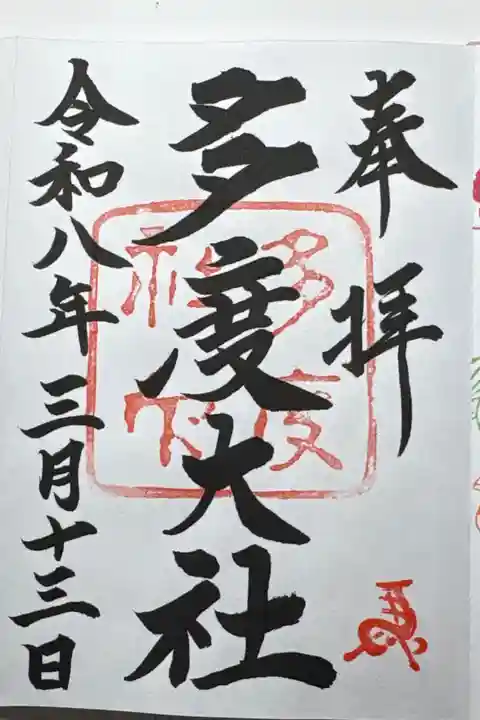 奉拝
多度大社
令和八年三月十三日
多度
神社